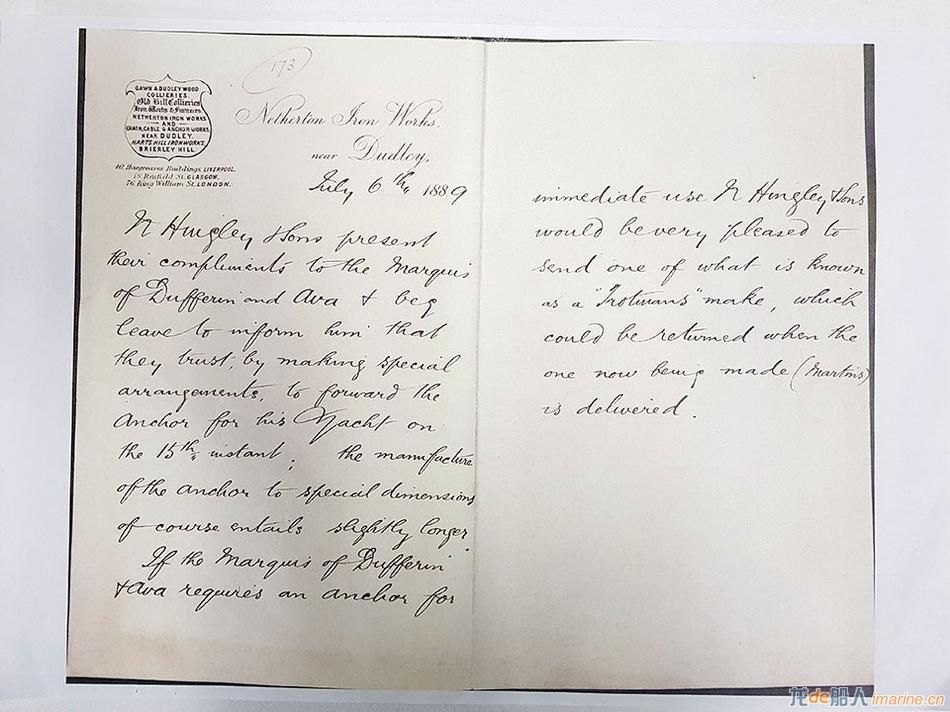 173
GAWN & DUDLEY WOOD
COLLIERIES.
Old Hill Collieries
Iron Works & Furnaces.
NETHERTON IRON WORKS
AND
CHAIN, CABLE & ANCHOR WORKS,
NEAR DUDLEY.
HARTS HILL IRONWORKS.
BRIERLEY HILL.
10, Hargreaves Buildings, LIVERPOOL.
18, Renfield St. GLASGOW.
76, King William St. LONDON.
Netherton Iron Works,
near Dudley,
July 6th, 1889
N Hingley & Sons present
their compliments to the Marquis
of Dufferin and Ava & beg
leave to inform him that
they trust, by making special
arrangements, to forward the
Anchor for his Yacht on
the 15th instant; the manufacture
of the anchor to special dimensions
of course entails slightly longer.
If the Marquis of Dufferin
& Ava requires an anchor for
immediate use N Hingley & Sons
would be very pleased to
send one of what is known
as a "Trotmans" make, which
could be returned when the
one now being made (Martins)
is delivered.
龙de船人 imarine.cn